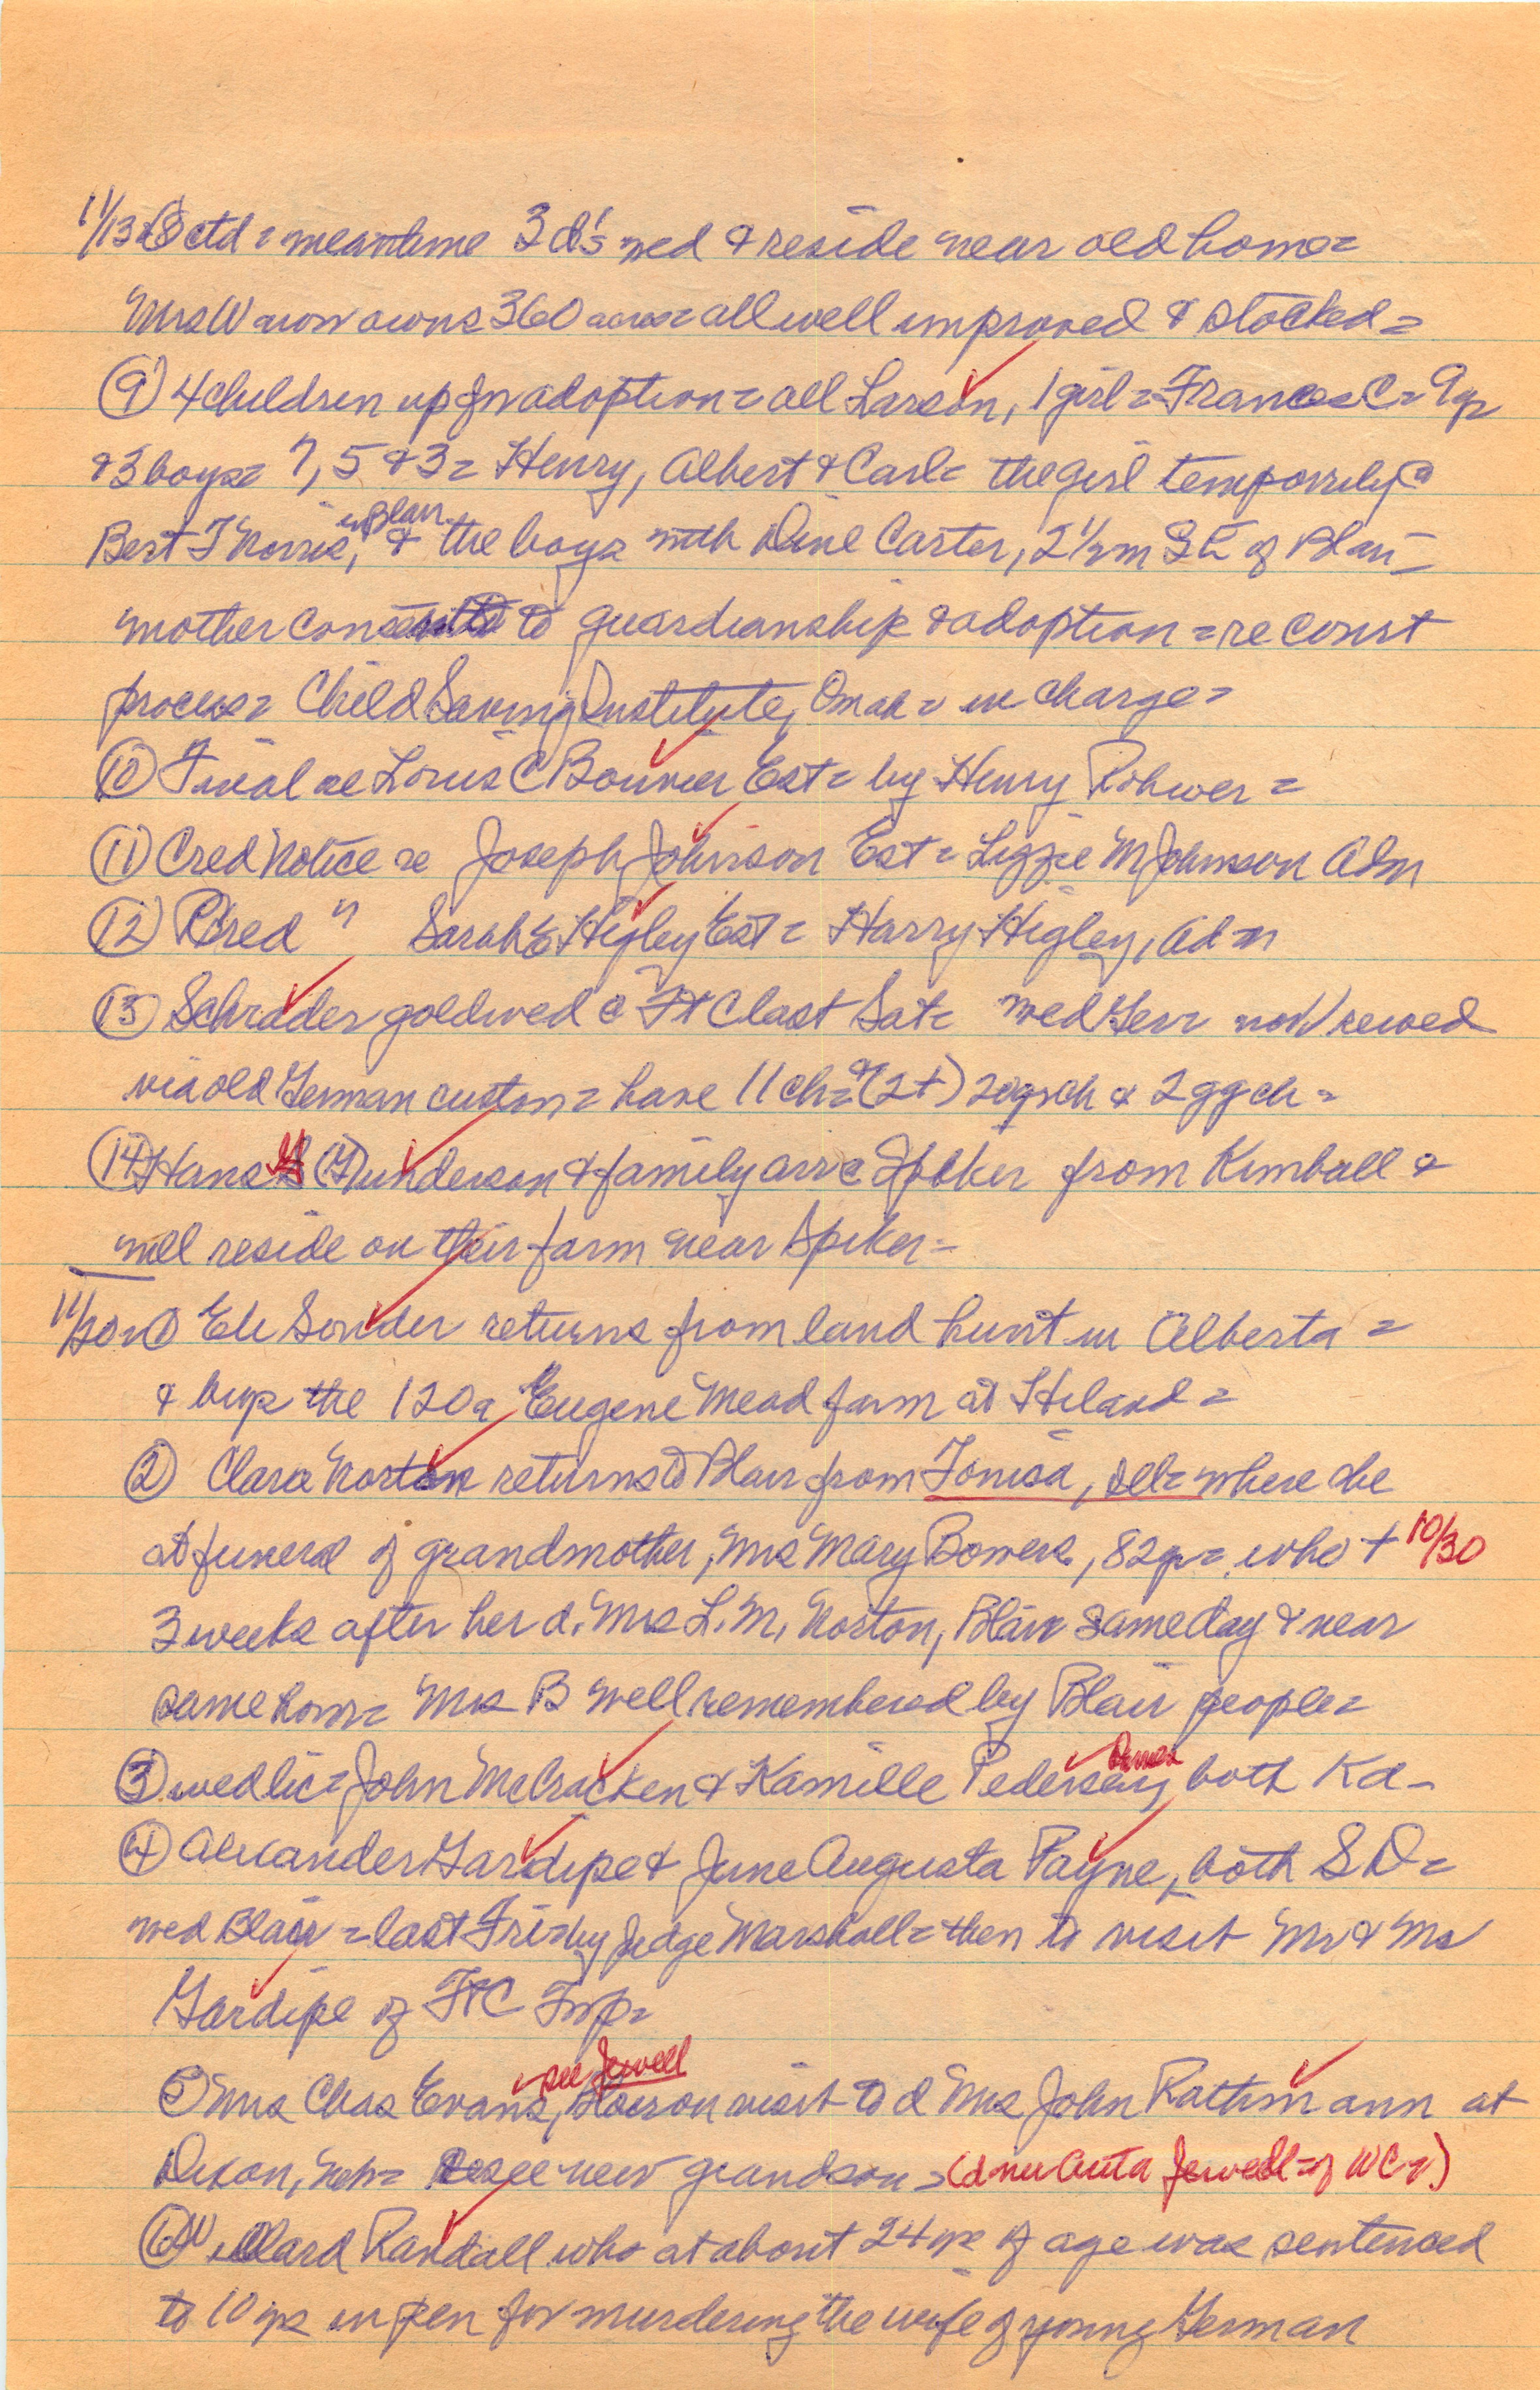 11/13 (8 ctd = meantime 3 d's wed & reside near old home =
Mrs W now owns 360 acres = all well improved & stocked =
(9) 4 children up for adoption = all Larson, 1 girl = Frances C = 9 yr
& 3 boys = 7, 5 & 3 = Henry, Albert & Carl = the girl temporrily @
Bert T Norris, in Blair & the boys with Carter, 2 1/2 m SE of Blair =
mother to guardianship & adoption = re court
process = Child Saving Institute, Omah = in charge =
(10) Final re Louis C Bouvier Est = by Henry Rohwer =
(11) Cred Notice re Joseph Johnson Est = Lizzie M Johnson Adm
(12) Cred " Sarah E Higley Est = Harry Higley, Adm
(13) Schrader gold wed @ Ft C last Sat = wed Ger = now rewed
via old German custom = have 11 ch = (2 +) 20 g ch & 2 gg ch =
(14) Hans Gunderson & family arr @ Spiker from Kimball &
will reside on their farm near Spiker =
11/20 = (1) Eli Sonder returns from land hunt in Alberta =
& buys the 120 a Eugene Mead farm at Hiland =
(2) Clara Norton returns to Blair from Tonica, Ill = where she
at funeral of grandmother, Mrs Mary Bowers, 82 yr = who + 10/30
3 weeks after her d. Mrs L. M. Norton, Blair same day & near
same hour = Mrs B well remembered by Blair people =
(3) wed lic = John McCracken & Kamille Pedersen, both Kd =
(4) Alexander Gardipe & June Augusta Payne, both S D =
wed Blair = last Fri = by Judge Marshall = then to visit Mr & Mrs
Gardipe of Ft C Twp =
see Jewell
(5) Mrs Chas Evans, Blair on visit to d Mrs John Rathmann at
Dixon, Neb = to see new grandson = (d nee Jewell = of WC =)
(6) Willard Randall who at about 24 yrs of age was sentenced
to 10 yrs in pen for murdering the wife of young German